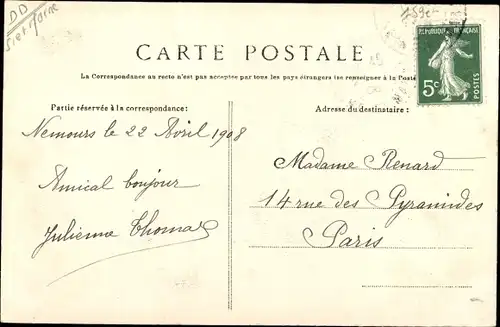 DD
S et Marne
CARTE POSTALE
La Correspondance au recto n'est pas acceptée par tous les pays étrangers (se renseigner à la Poste
RÉPUBLIQUE FRANÇAISE
5c
POSTES
Partie réservée à la correspondance:
Nemours le 22 Avril 1908
Amical bonjour
Julienne Thomas
Adresse du destinataire:
Madame Renard
14 rue des Pyramides
Paris